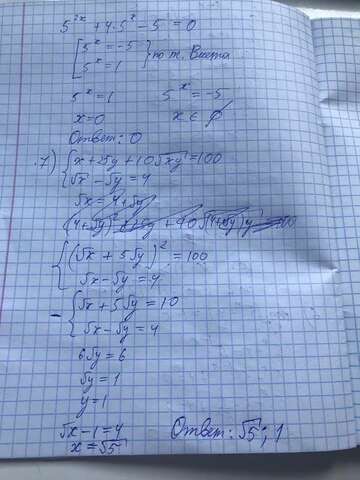 5^{2x} + 4·5^x - 5 = 0
[ 5^x = -5
5^x = 1 } по т. Виета
5^x = 1    5^x = -5
x = 0    x ∈ ∅
Ответ: 0
7) { x + 25y + 10√xy = 100
√x - √y = 4
√x = 4 + √y
{ (√x + 5√y)² = 100
√x - √y = 4
- { √x + 5√y = 10
√x - √y = 4
6√y = 6
√y = 1
y = 1
√x - 1 = 4    Ответ: √5 ; 1
x = √5